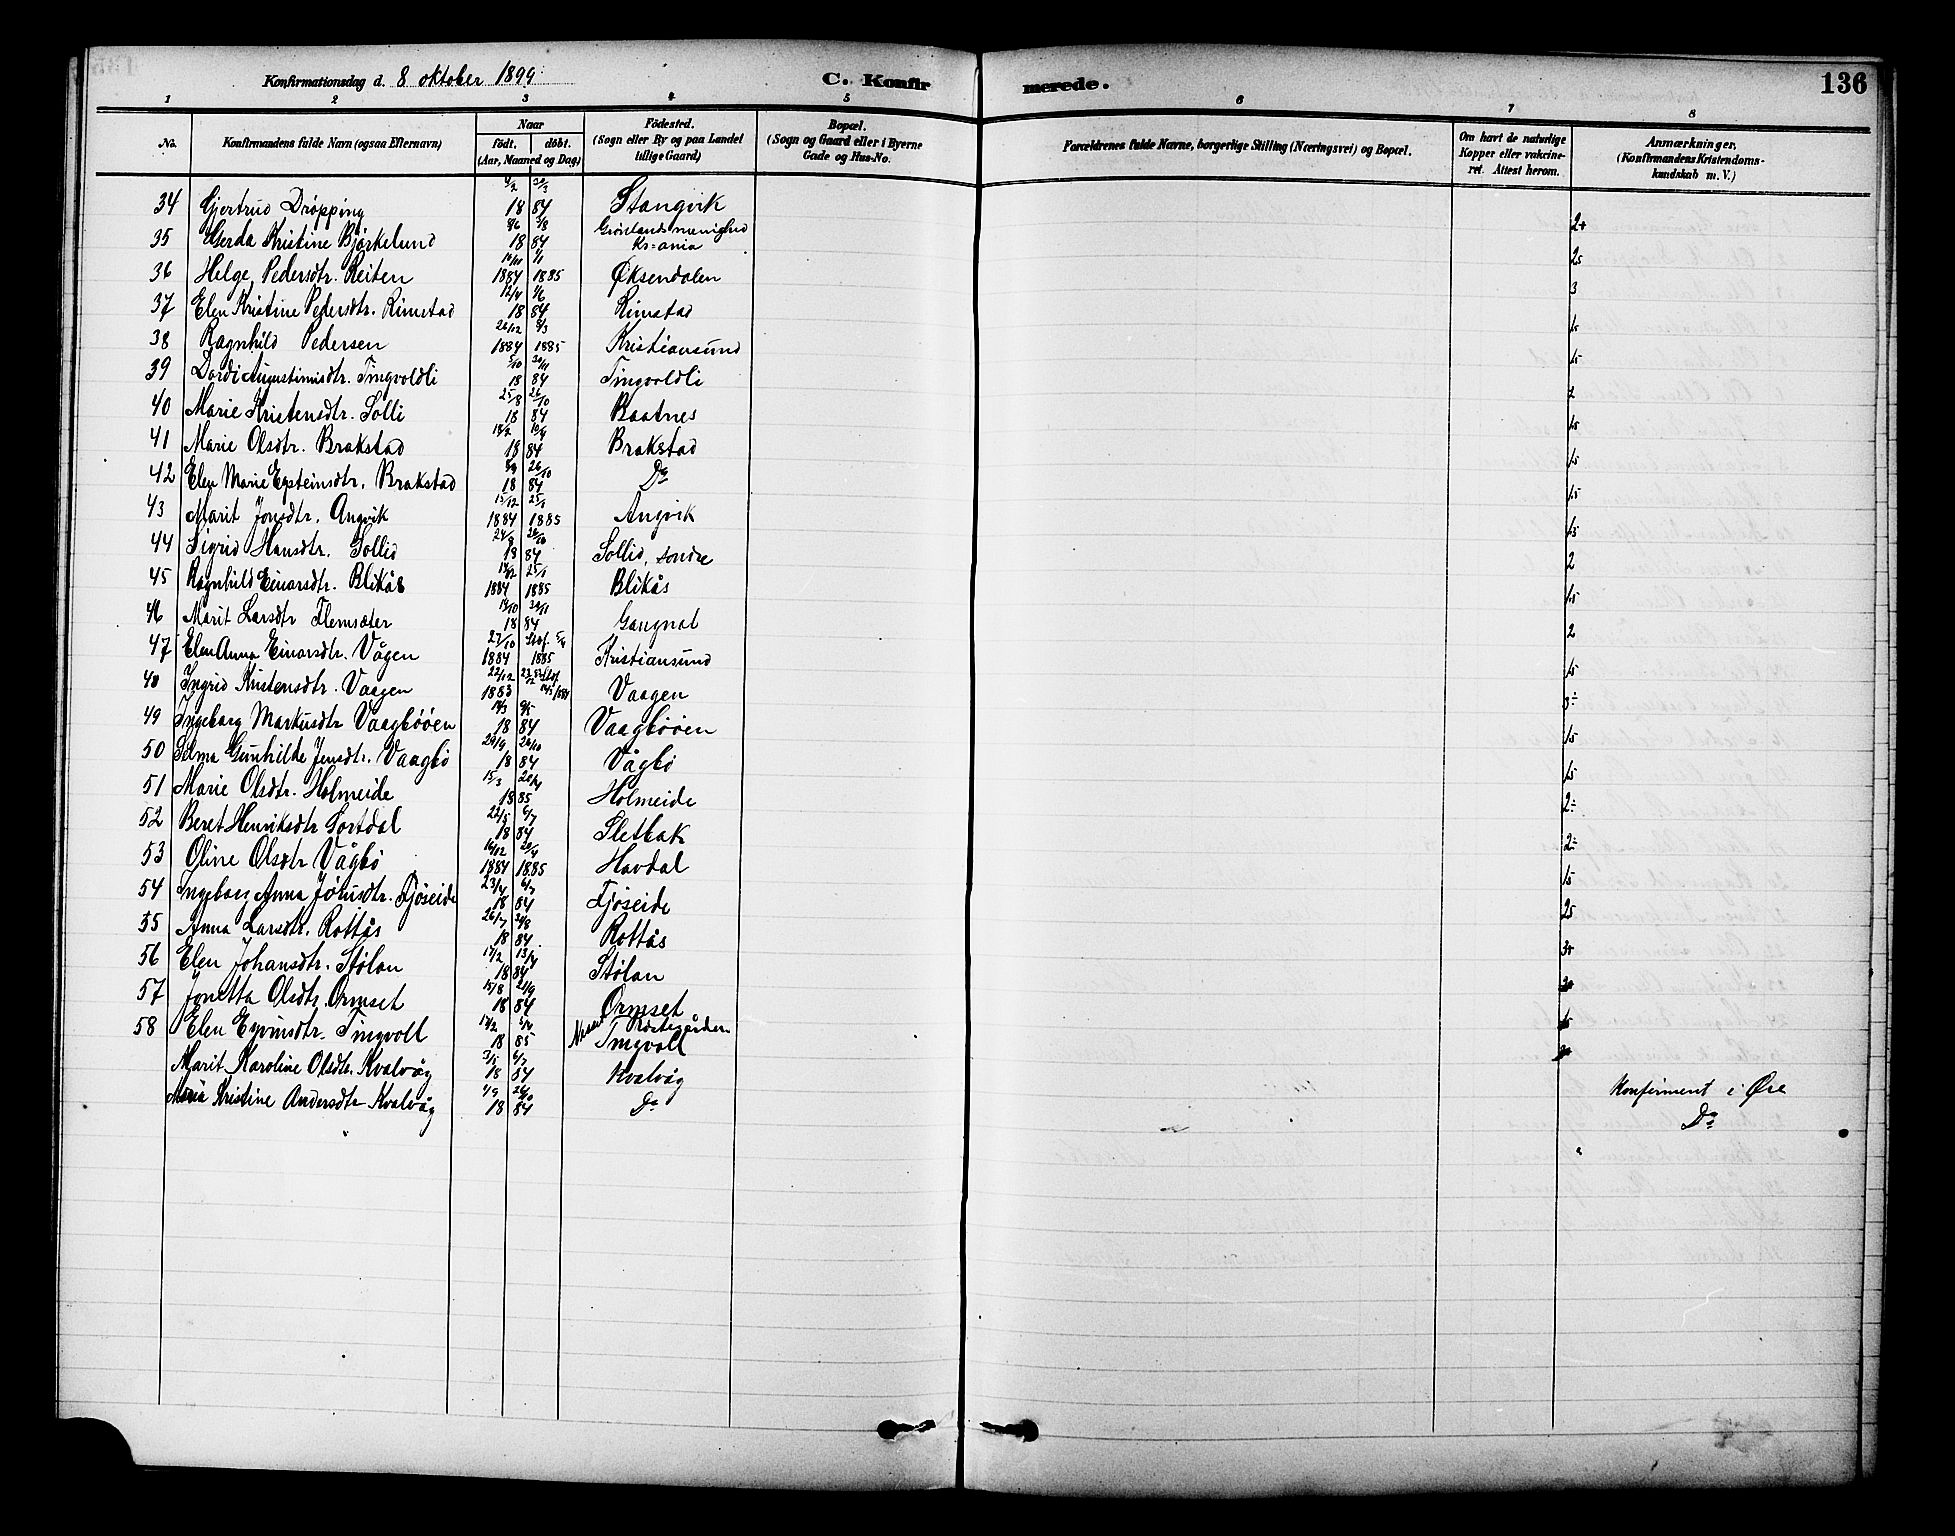 Konfirmationsdag d. 8 oktober 1899.
C. Konfirmerede.
136
1 2 3 4 5 6 7 8
No. Konfirmandens fulde Navn (ogsaa Efternavn) Naar Födested. (Sogn eller By og paa Landet tillige Gaard) Bopæl. (Sogn og Gaard eller i Byerne Gade og Hus-No. Forældrenes fulde Navne, borgerlige Stilling (Næringsvei) og Bopæl. Om havt de naturlige Kopper eller vakcineret. Attest herom. Anmærkninger. (Konfirmandens Kristendomskundskab m. V.)
Födt. döbt. (Aar, Maaned og Dag)
34 Gjertrud Dröpping 4/2 30/3 18 84 Stangvik
35 Gerda Kristine Björkelund 18 84 Grönlands menighed Kr=ania 2+
36 Helge Pedersdtr. Reiten 1884 1885 Øksendalen 25
37 Elen Kristine Pedersdtr. Rimstad 12/4 1/6 18 84 Rimstad 3
38 Ragnhild Pedersen 26/12 8/3 1884 1885 Kristiansund 15
39 Dordi Augustinusdtr. Tingvoldli 5/10 30/11 18 84 Tingvoldli 15
40 Marie Kristensdtr. Solli 25/8 26/10 18 84 Baatnes 2
41 Marie Olsdtr. Brakstad 18 84 Brakstad 15
42 Elen Marie Eysteinsdtr. Brakstad 26/10 18 84 Do 15
43 Marit Jonsdtr. Angvik 15/12 25/1 1884 1885 Angvik 15
44 Sigrid Hansdtr. Sollid 24/8 26/10 18 84 Sollid, söndre 15
45 Ragnhild Einarsdtr. Blikås 14/12 25/1 1884 1885 Blikås 2
46 Marit Larsdtr Flemsæter 19/10 30/11 18 84 Gangnat 15
47 Elen Anna Einarsdtr. Vågen 27/10 1884 1885 Kristiansund 2
48 Ingrid Kristensdtr. Vaagen 22/12 1883 Vaagen 15
49 Ingeborg Markusdtr Vaagbööen 18 84 Vaagbööen 3÷
50 Selma Gunhilde Jensdtr. Vaagbö 29/9 26/10 18 84 Vågbö 15
51 Marie Olsdtr. Holmeide 15/3 20/4 18 85 Holmeide 15
52 Beret Henriksdtr Sortdal 22/5 6/7 18 84 Sletbak 2÷
53 Oline Olsdtr Vågbö 16/12 20/4 1884 1885 Havdal 2÷
54 Ingeborg Anna Johusdtr. Fjöseide 23/4 6/7 18 84 Fjöseide 15
55 Anna Larsdtr. Rottås 26/7 18 84 Rottås 25
56 Elen Johansdtr. Stölan 17/2 13/4 18 84 Stölan
57 Jonetta Olsdtr. Ormset 15/8 21/9 18 84 Ormset
58 Elen Eyvindsdtr. Tingvoll 18 85 Tingvoll
Marit Karoline Olsdtr. Kvalvåg 3/5 6/7 18 84 Kvalvåg Konfirment i Øre
Maria Kristine Andersdtr Kvalvåg 26/10 18 84 Do Do